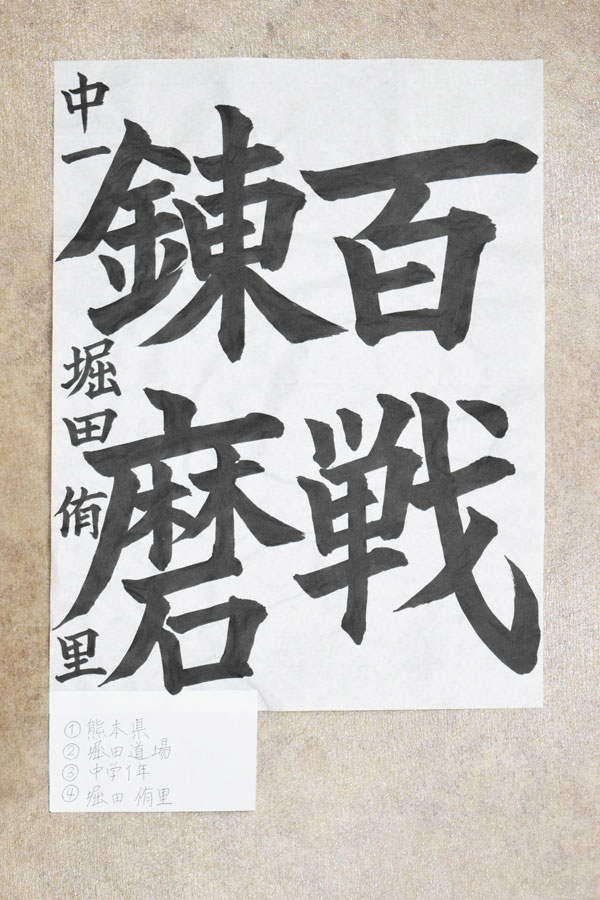 百戦
錬磨
中一 堀田侑里
①熊本県
②堀田道場
③中学1年
④堀田 侑里